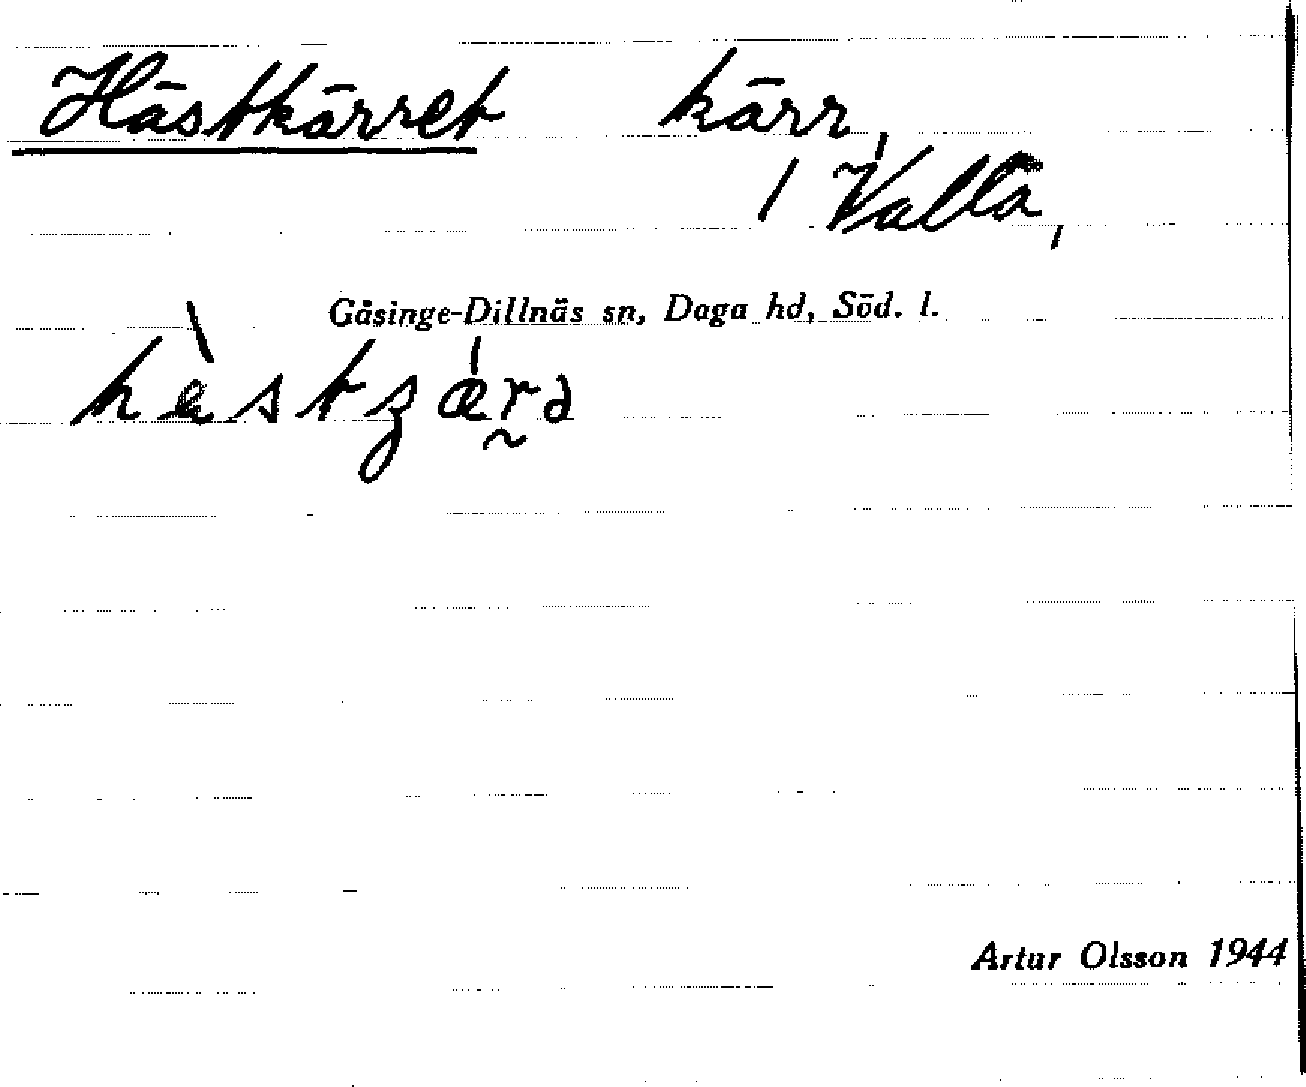 Hästkärret kärr,
/ Valla,
Gåsinge-Dillnäs sn, Daga hd, Söd. l.
Artur Olsson 1944